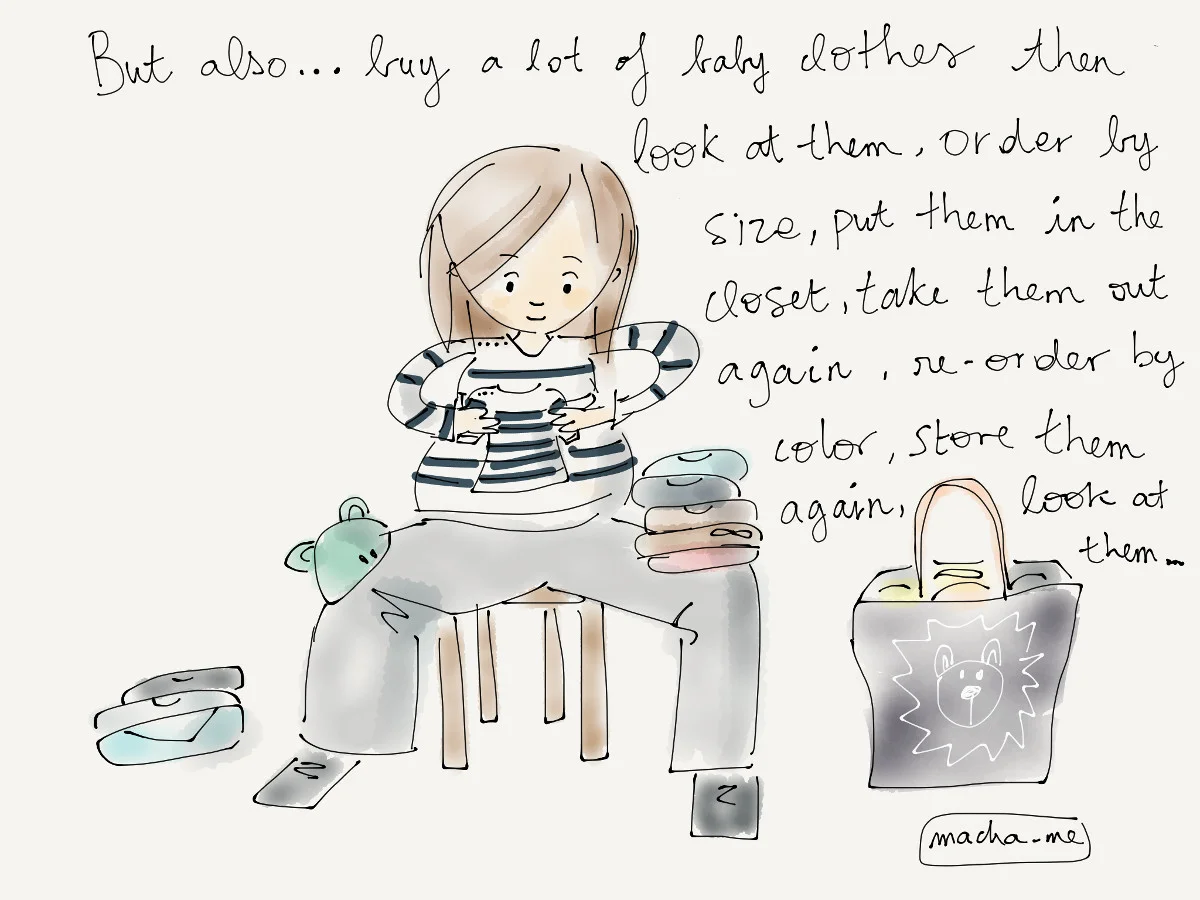 But also... buy a lot of baby clothes then
look at them, order by
size, put them in the
closet, take them out
again, re-order by
color, store them
again, look at
them...
macha-me